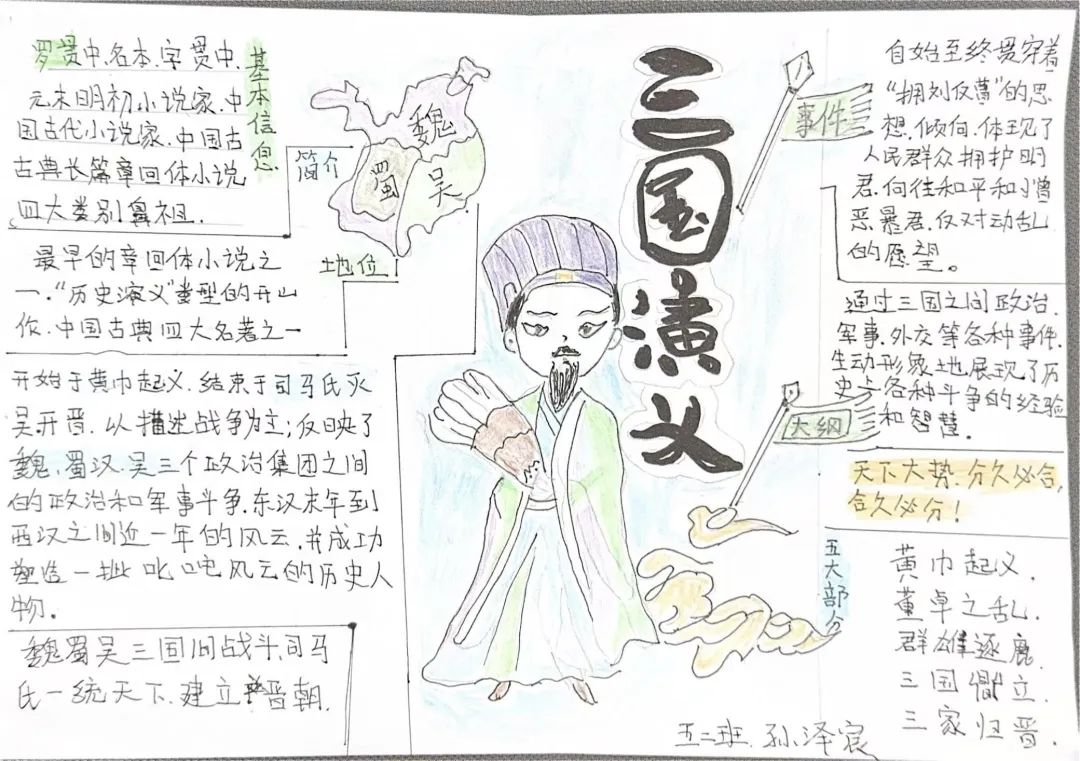 三国演义
基本信息
罗贯中,名本,字贯中,
元末明初小说家,中
国古代小说家,中国古
古典长篇章回体小说
四大类别鼻祖.
简介
魏
蜀
吴
地位
最早的章回体小说之
一."历史演义"类型的开山
作,中国古典四大名著之一
开始于黄巾起义,结束于司马氏灭
吴开晋.以描述战争为主;反映了
魏,蜀汉,吴三个政治集团之间
的政治和军事斗争,东汉末年到
西汉之间近一年的风云,并成功
塑造一批叱咤风云的历史人
物.
魏蜀吴三国间战斗,司马
氏一统天下,建立晋朝.
事件
自始至终贯穿着
"拥刘反曹"的思
想,倾向,体现了
人民群众拥护明
君,向往和平和憎
恶暴君,反对动乱
的愿望。
通过三国之间政治,
军事,外交等各种事件,
生动形象地展现了历
史上各种斗争的经验
和智慧.
大纲
天下大势,分久必合,
合久必分!
五大部分
黄巾起义,
董卓之乱,
群雄逐鹿,
三国鼎立,
三家归晋.
五二班,孙泽宸